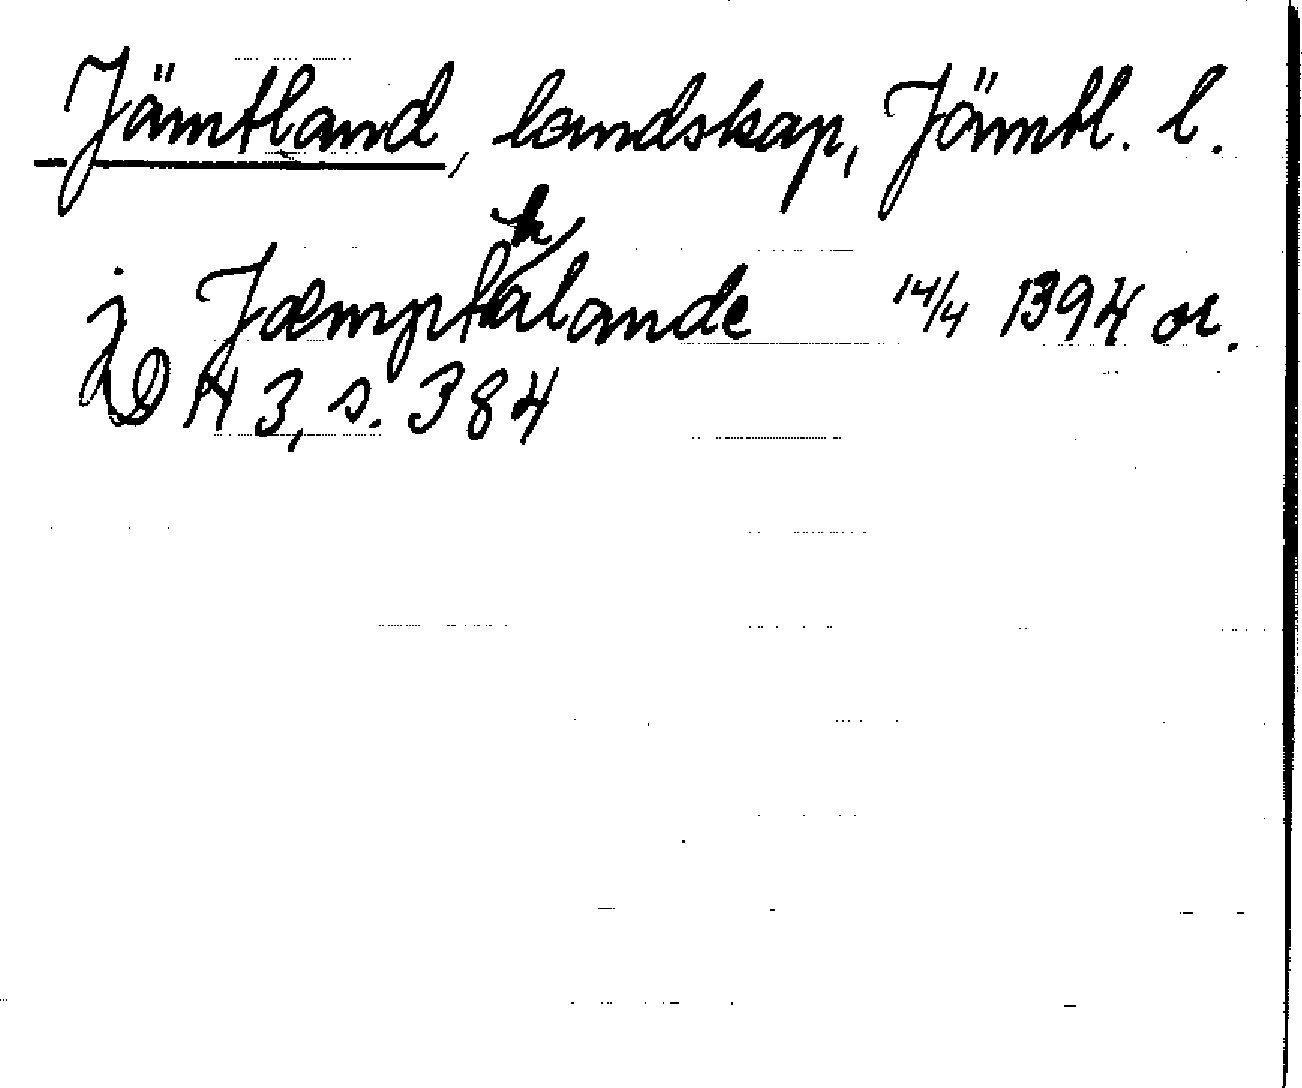 Jämtland, landskap, Jämtl. l.
j Jæmptalande 14/4 1394 or.
DN 3, s. 384